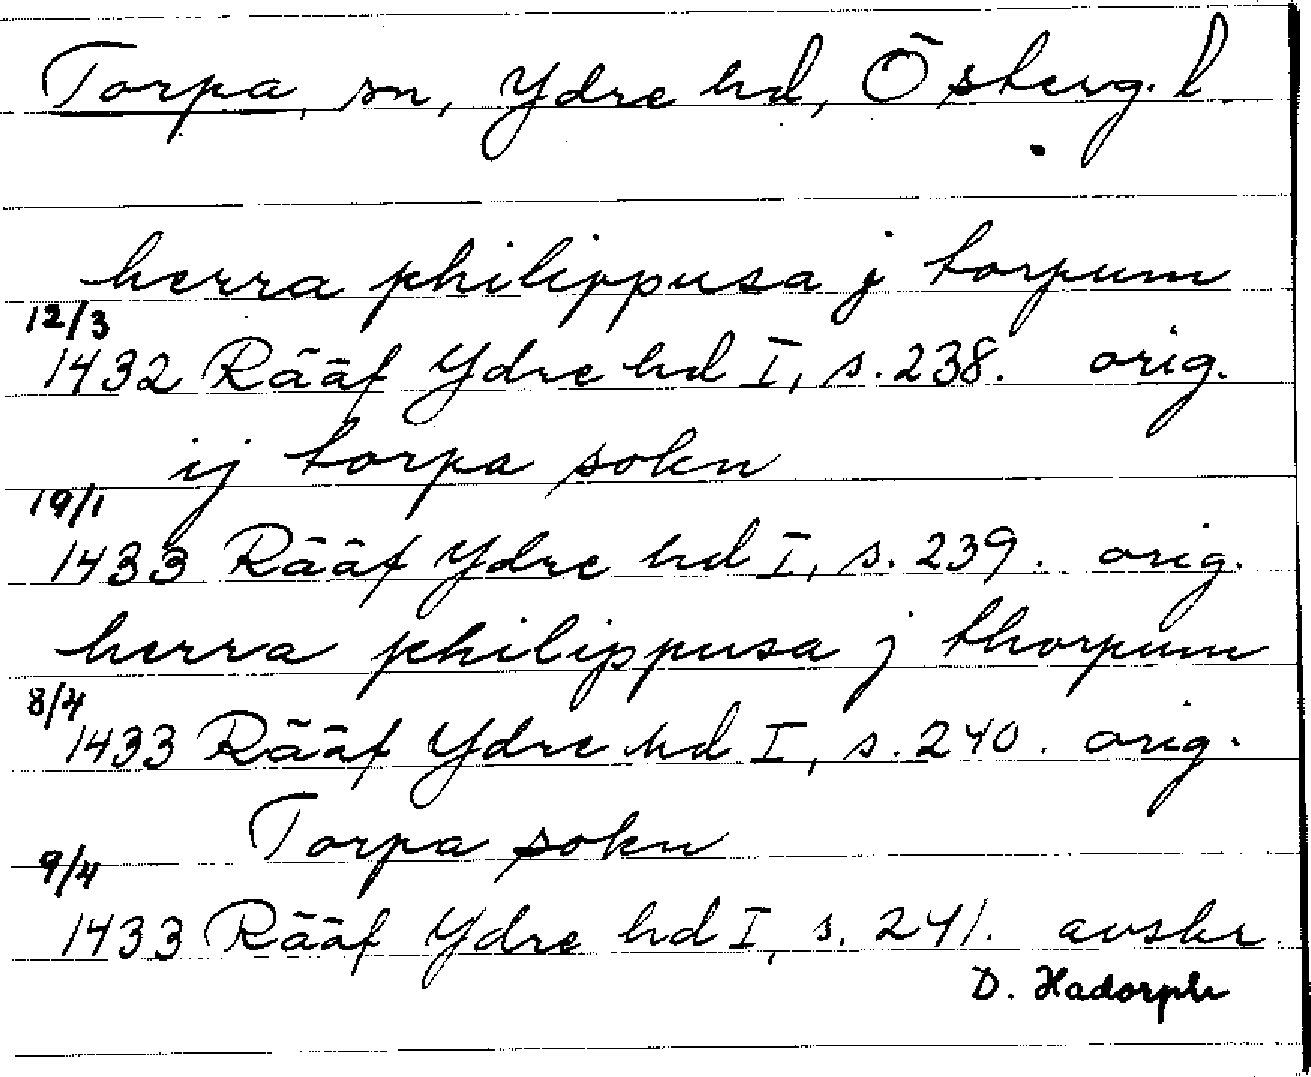 Torpa, sn, Ydre hd, Österg. l.
herra philippusa j torpum
12/3
1432 Rääf Ydre hd I, s. 238. orig.
ij torpa sokn
19/1
1433 Rääf Ydre hd I, s. 239. orig.
herra philippusa j thorpum
8/4
1433 Rääf Ydre hd I, s. 240. orig.
Torpa sokn
9/4
1433 Rääf Ydre hd I, s. 241. avskr.
D. Hadorph